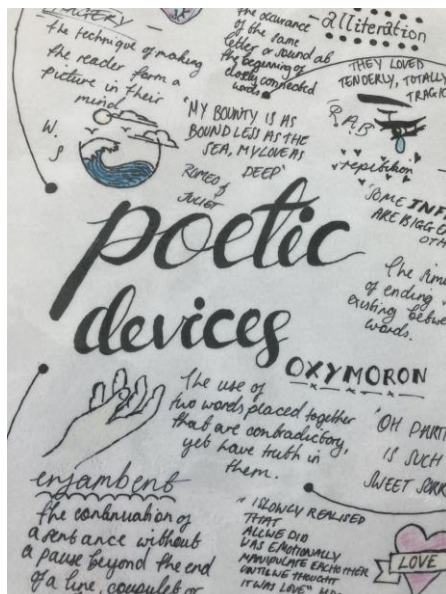 IMAGERY
the technique of making
the reader form a
picture in their
mind
W.
S
the occurance
of the same
letter or sound at
the beginning of
closely connected
words
alliteration
THEY LOVED
TENDERLY, TOTALLY
TRAGIC
'MY BOUNTY IS AS
BOUNDLESS AS THE
SEA, MY LOVE AS
DEEP'
ROMEO &
JULIET
repitition
'SOME INFI
ARE BIGGE
OTH
poetic
devices
of ending
existing betwe
words.
OXYMORON
The use of
two words placed together
that are contradictory,
yet have truth in
them.
'OH PART
IS SUCH
SWEET SORR
enjambent
the continuation of
a sentance without
a pause beyond the end
of a line, couplet or
"I SLOWLY REALISED
THAT
ALL WE DID
WAS EMOTIONALLY
MANIPULATE EACH OTHER
UNTIL WE THOUGHT
IT WAS LOVE"
LOVE